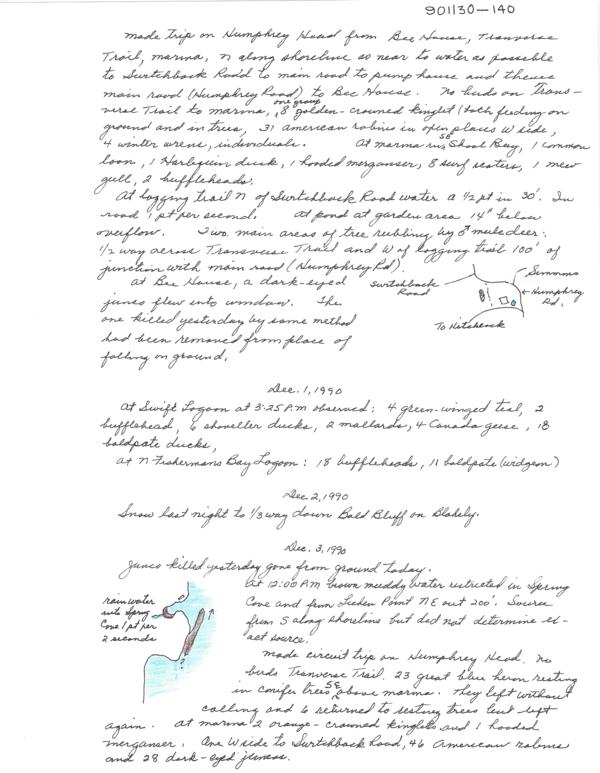 901130-140
made trip on Humphrey Head from Bee House, Transverse
Trail, marina, N along shoreline as near to water as possible
to Switchback Road to main road to pump house and thence
main road (Humphrey Road) to Bee House. No birds on Trans-
verse Trail to marina, one group 8 golden-crowned kinglet (both feeding on
ground and in trees, 31 american robins in open places W side,
4 winter wrens, individuals. At marina in SE Shoal Bay, 1 common
loon, 1 Harlequin duck, 1 hooded merganser, 8 surf scoters, 1 mew
gull, 2 buffleheads.
At logging trail N of Switchback Road water a 1/2 pt in 30'. In
road 1 pt per second. At pond at garden area 14" below
overflow. Two main areas of tree rubbing by ♂ mule deer:
1/2 way across Transverse Trail and W of logging trail 100' of
junction with main road (Humphrey Rd).
At Bee House, a dark-eyed
junco flew into window. The
one killed yesterday by same method
had been removed from place of
falling on ground.
Switchback
Road
Simmms
Humphrey
Rd.
To Hitchcock
Dec. 1, 1990
At Swift Lagoon at 3:25 P.m observed: 4 green-winged teal, 2
bufflehead, 6 shoveller ducks, 2 mallards, 4 Canada geese, 18
baldpate ducks,
At N Fishermans Bay Lagoon: 18 buffleheads, 11 baldpate (widgeon)
Dec 2, 1990
Snow last night to 1/3 way down Bald Bluff on Blakely.
Dec. 3, 1990
Junco killed yesterday gone from ground today.
At 12:00 P.M brown muddy water restricted in Spring
Cove and from Lichen Point NE out 200'. Source
from S along shoreline but did not determine ex-
act source.
rain water
into Spring
Cove 1 pt per
2 seconds
?
made circuit trip on Humphrey Head. No
birds Tranverse Trail. 23 great blue heron resting
in conifer trees SE above marina. They left without
calling and 6 returned to resting trees but left
again. At marina 2 orange-crowned kinglets and 1 hooded
merganser. One W side to Switchback Road, 46 American robins
and 28 dark-eyed juncos.